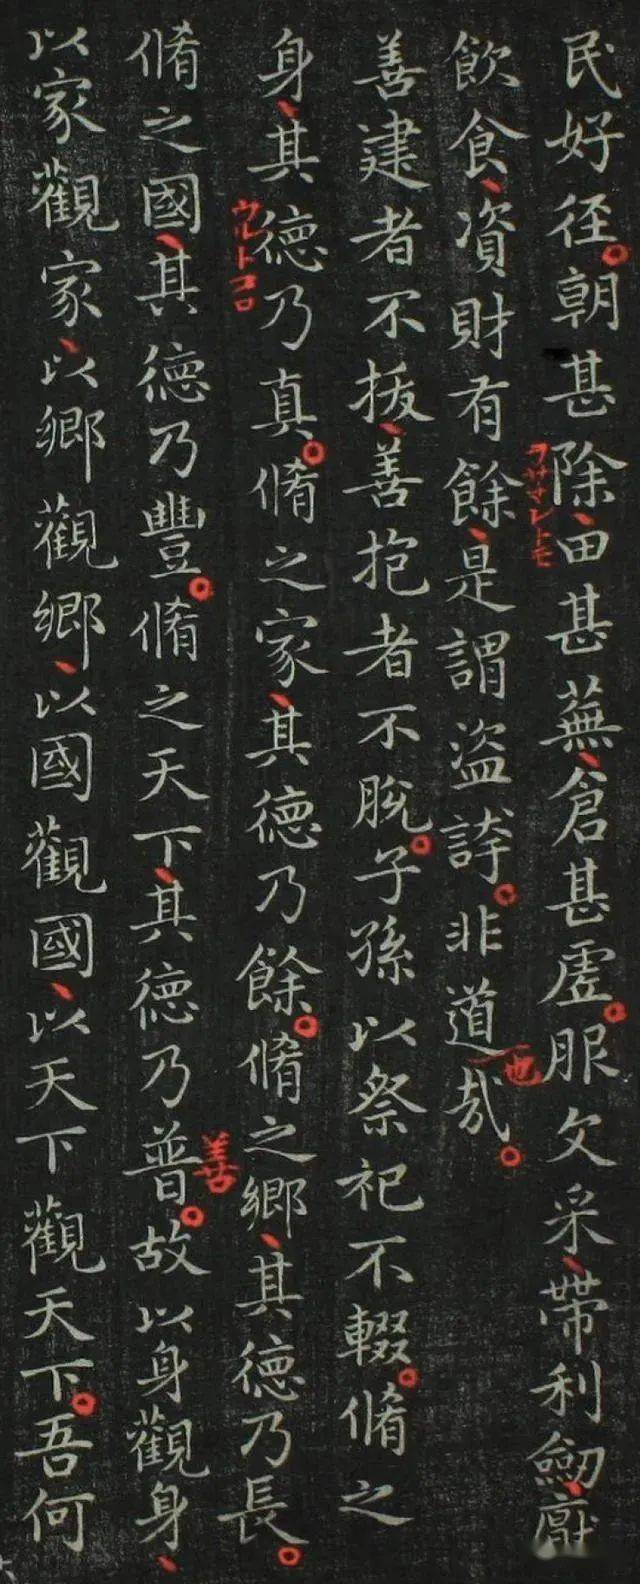 民好径。朝甚除、田甚蕪、倉甚虛。服文采、帶利劒、厭
フサマレトモ
飲食、資財有餘、是謂盜誇。非道哉。
也
善建者不拔、善抱者不脫。子孫以祭祀不輟。脩之
身、其徳乃真。脩之家、其徳乃餘。脩之鄉、其徳乃長。
ウルトコロ
脩之國、其徳乃豐。脩之天下、其徳乃普。故以身觀身、
善
以家觀家、以鄉觀鄉、以國觀國、以天下觀天下。吾何